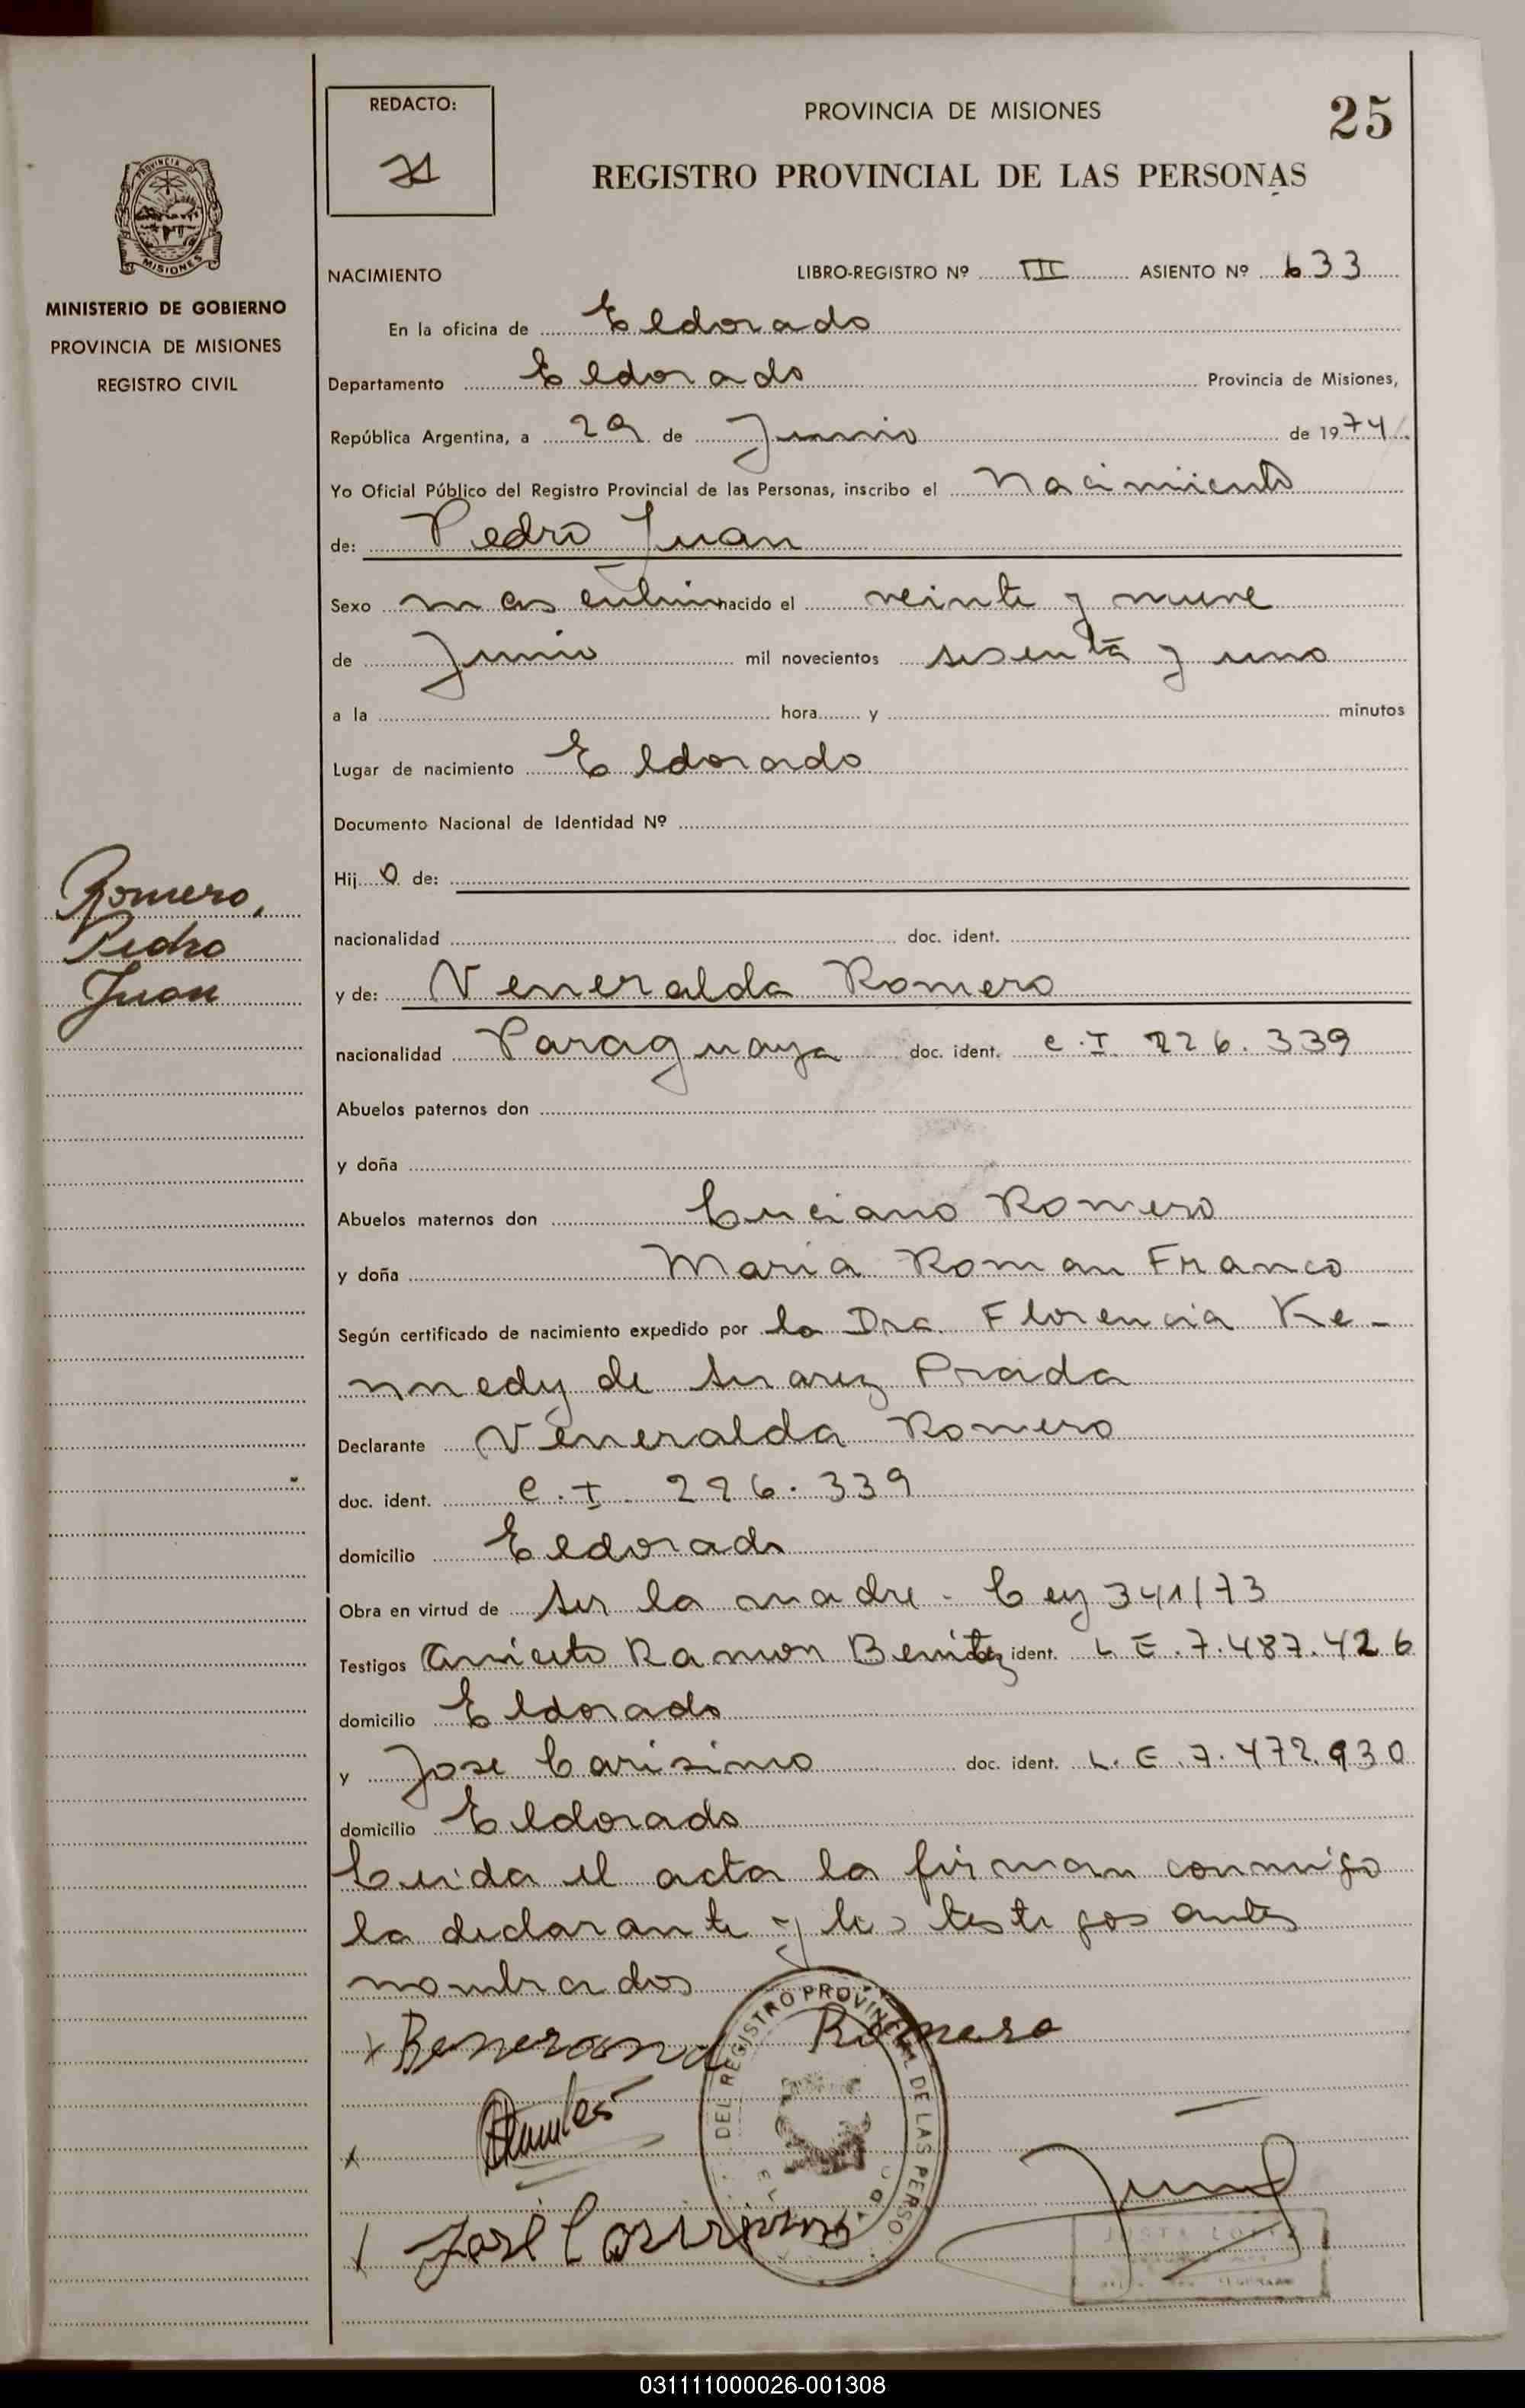 REDACTO:
PROVINCIA DE MISIONES
25
REGISTRO PROVINCIAL DE LAS PERSONAS
PROVINCIA DE
MISIONES
MINISTERIO DE GOBIERNO
PROVINCIA DE MISIONES
REGISTRO CIVIL
NACIMIENTO LIBRO-REGISTRO Nº III ASIENTO Nº 633
En la oficina de Eldorado
Departamento Eldorado Provincia de Misiones,
República Argentina, a 29 de Junio de 1974.
Yo Oficial Público del Registro Provincial de las Personas, inscribo el Nacimiento
de: Pedro Juan
Sexo masculino nacido el veinte y nueve
de Junio mil novecientos sesenta y uno
a la hora y minutos
Lugar de nacimiento Eldorado
Documento Nacional de Identidad Nº
Hijo de:
Romero,
Pedro
Juan
nacionalidad doc. ident.
y de: Veneralda Romero
nacionalidad Paraguaya doc. ident. C.I. 226.339
Abuelos paternos don
y doña
Abuelos maternos don Luciano Romero
y doña Maria Roman Franco
Según certificado de nacimiento expedido por la Dra. Florencia Ke-
nnedy de Suarez Prada
Declarante Veneralda Romero
doc. ident. C.I. 226.339
domicilio Eldorado
Obra en virtud de ser la madre - Ley 341/73
Testigos Aniceto Ramon Benitez ident. L E. 7.487.426
domicilio Eldorado
y Jose Carisimo doc. ident. L. E. 7.472.930
domicilio Eldorado
Leida el acta la firman conmigo
la declarante y los testigos antes
nombrados
x Benerana Romero
x
José Carisimo
DEL REGISTRO PROVINCIAL DE LAS PERSO
031111000026-001308